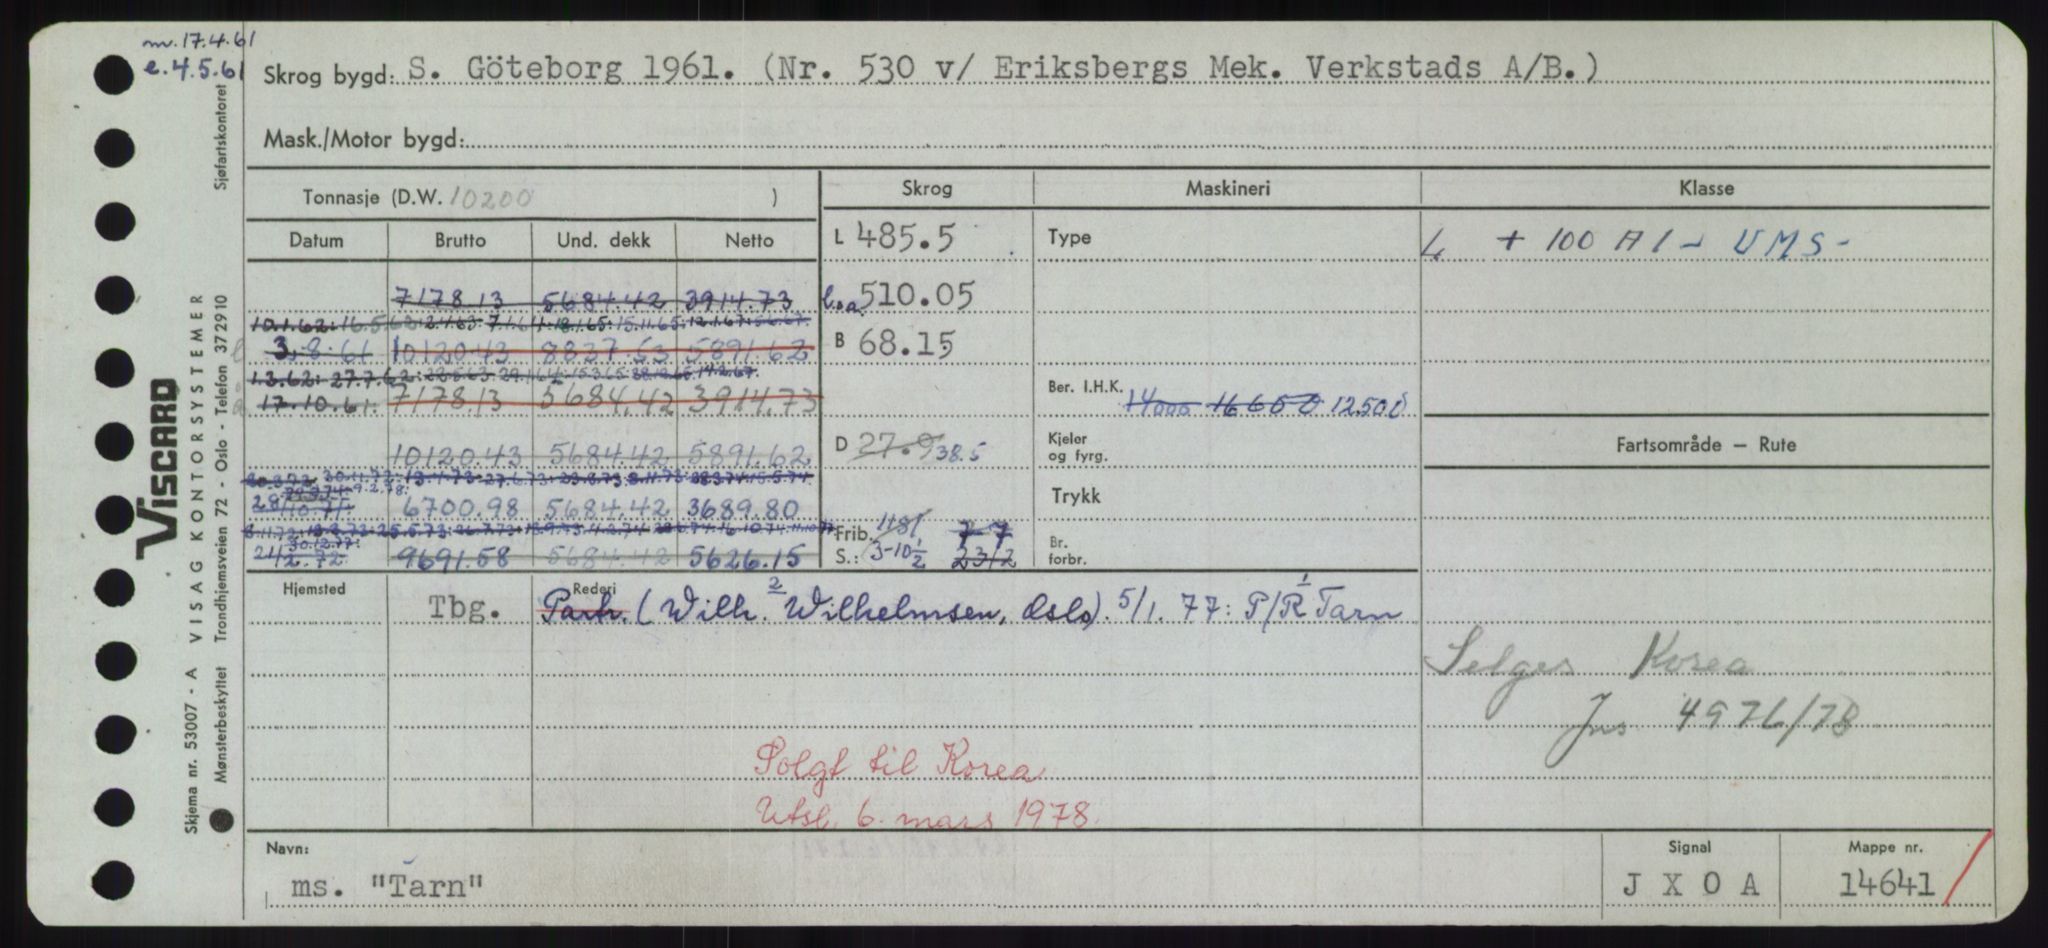 m. 17.4.61
e. 4.5.61
Sjøfartskontoret
Skrog bygd: S. Göteborg 1961. (Nr. 530 v/ Eriksbergs Mek. Verkstads A/B.)
Mask./Motor bygd:
Tonnasje (D.W. 10200 )
Skrog Maskineri Klasse
Datum Brutto Und. dekk Netto
L 485.5 Type L + 100 A 1 - UMS -
7178.13 5684.42 3914.73
l.o.a. 510.05
10.1.62: 16.5.62: 2.1.63: 7.1.64: 18.1.65: 15.11.65: 12.1.67: 5.6.67.
3.8.61 10120.43 8827.53 5891.62
B 68.15
1.3.62: 27.7.62: 22.5.63 29.1.64: 15.3.65 14.2.67.
17.10.61. 7178.13 5684.42 3914.73
Ber. I.H.K. 14000 16600 12.500
10120.43 5684.42 5891.62
D 27.9 38.5
Kjeler og fyrg.
Fartsområde – Rute
30.11.72: 13.4.73 27.6.73 23.8.73 8.11.73 15.5.74
9.2.78.
6700.98 5684.42 3689.80
Trykk
Frib. 1181 7-7
S.: (3-10½ 23½
Br. forbr.
30.12.77:
21/2.72 9691.58 5684.42 5626.15
Hjemsted Rederi
Tbg. Partr. (Wilh. 2 Wilhelmsen, Oslo). 5/1. 77: P/R 1 Tarn
Selges Korea
Jns 4976/78
Solgt til Korea
Utsl. 6. mars 1978.
Navn: Signal Mappe nr.
ms. "Tarn" J X O A 14641
VISCARD
VISAG KONTORSYSTEMER
Skjema nr. 53007 - A
Mønsterbeskyttet Trondhjemsveien 72 - Oslo - Telefon 372910